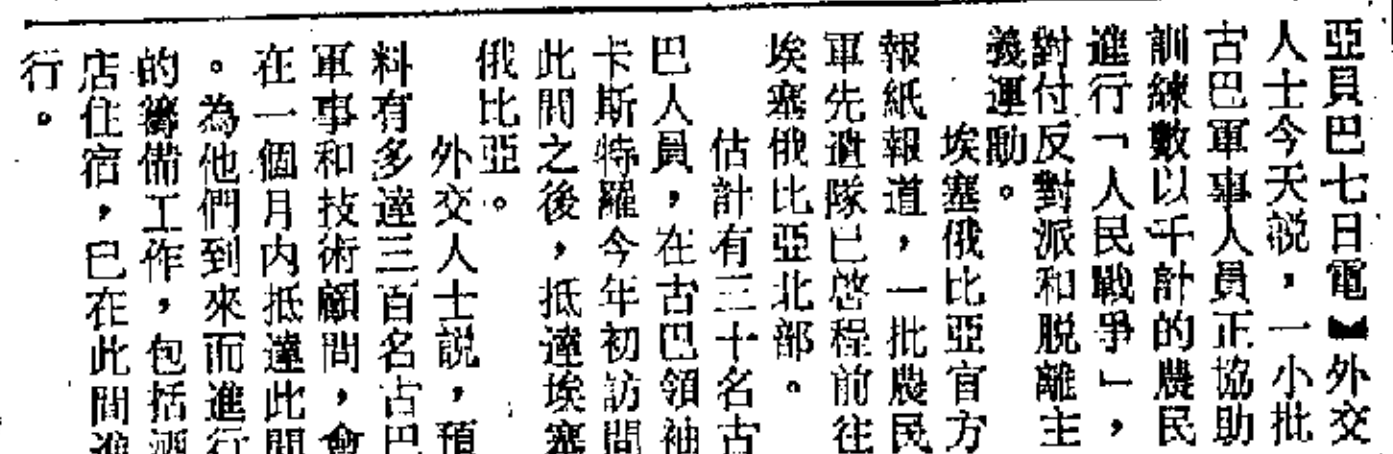 亞貝巴七日電】外交
人士今天説，一小批
古巴軍事人員正協助
訓練數以千計的農民
進行「人民戰爭」，
對付反對派和脱離主
義運動。
埃塞俄比亞官方
報紙報道，一批農民
軍先遣隊已啓程前往
埃塞俄比亞北部。
估計有三十名古
巴人員，在古巴領袖
卡斯特羅今年初訪問
此間之後，抵達埃塞
俄比亞。
外交人士説，預
料有多達三百名古巴
軍事和技術顧問，會
在一個月内抵達此間
。為他們到來而進行
的籌備工作，包括酒
店住宿，已在此間進
行。